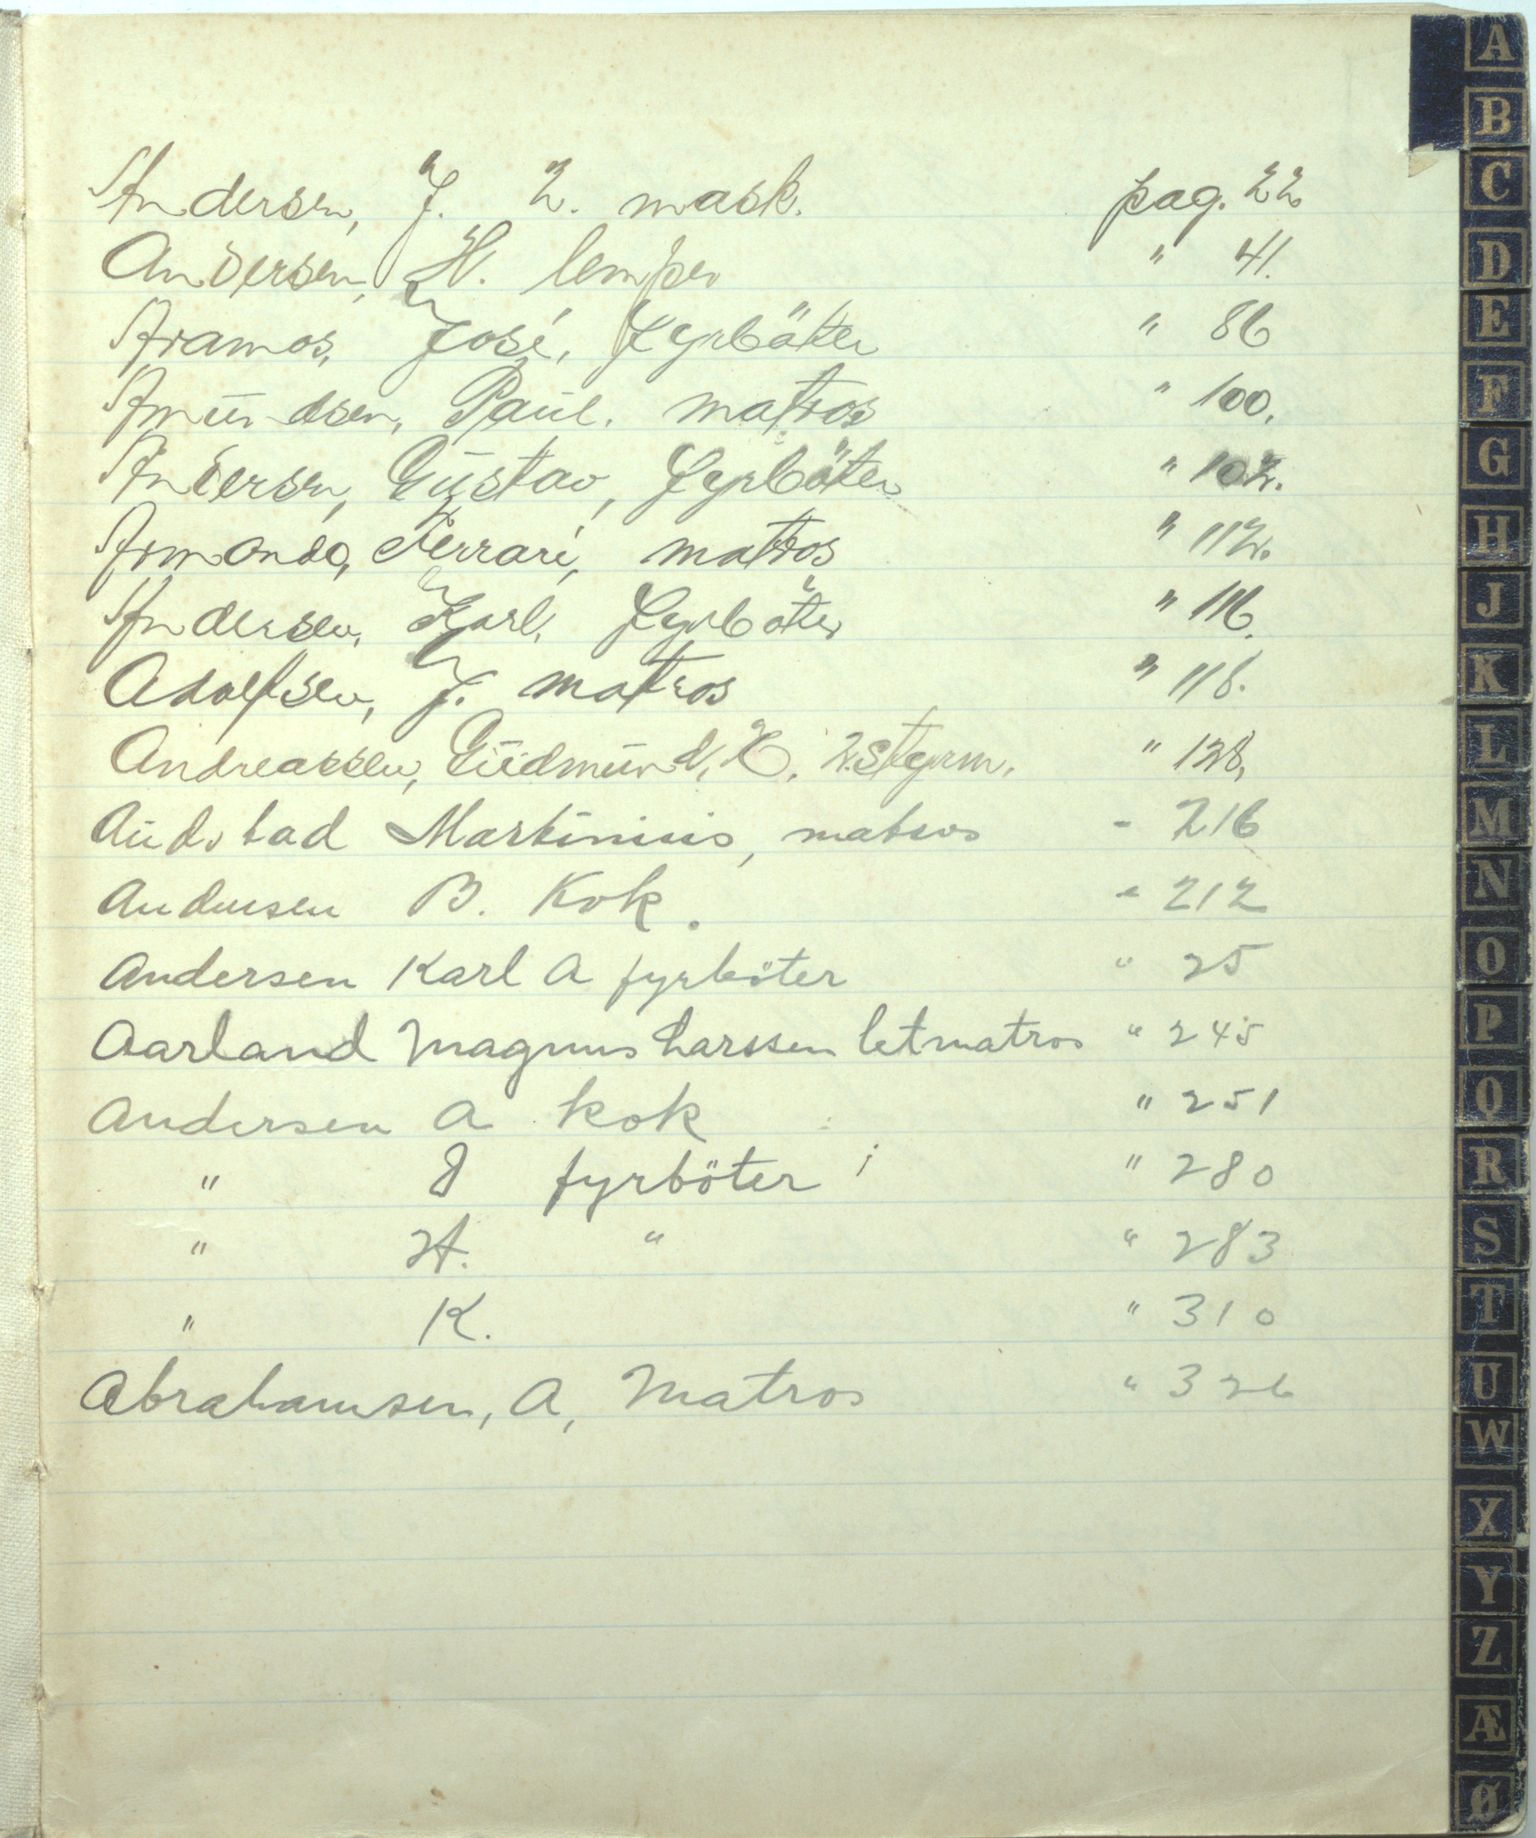 Andersen, J. 2. mask. pag. 22
Andersen, H. lemper " 41.
Aramos, José, Fyrböter " 86
Amundsen, Paul. matros " 100.
Andersen, Gustav, Fyrböter " 102.
Armando, Ferrari, matros " 112.
Andersen, Karl, Fyrböter " 116.
Adolfsen, J. matros " 118.
Andreassen, Gudmund, E. 2. Styrm. " 128,
Audstad Martinius, matros - 216
Andersen B. Kok. " 212
Andersen Karl A fyrböter " 25
Aarland Magnus Larssen letmatros " 245
Andersen A kok " 251
" J fyrböter " 280
" H. " " 283
" K. " 310
Abrahamsen, A, Matros " 326
A
B
C
D
E
F
G
H
J
K
L
M
N
O
P
Q
R
S
T
U
W
X
Y
Z
Æ
Ø